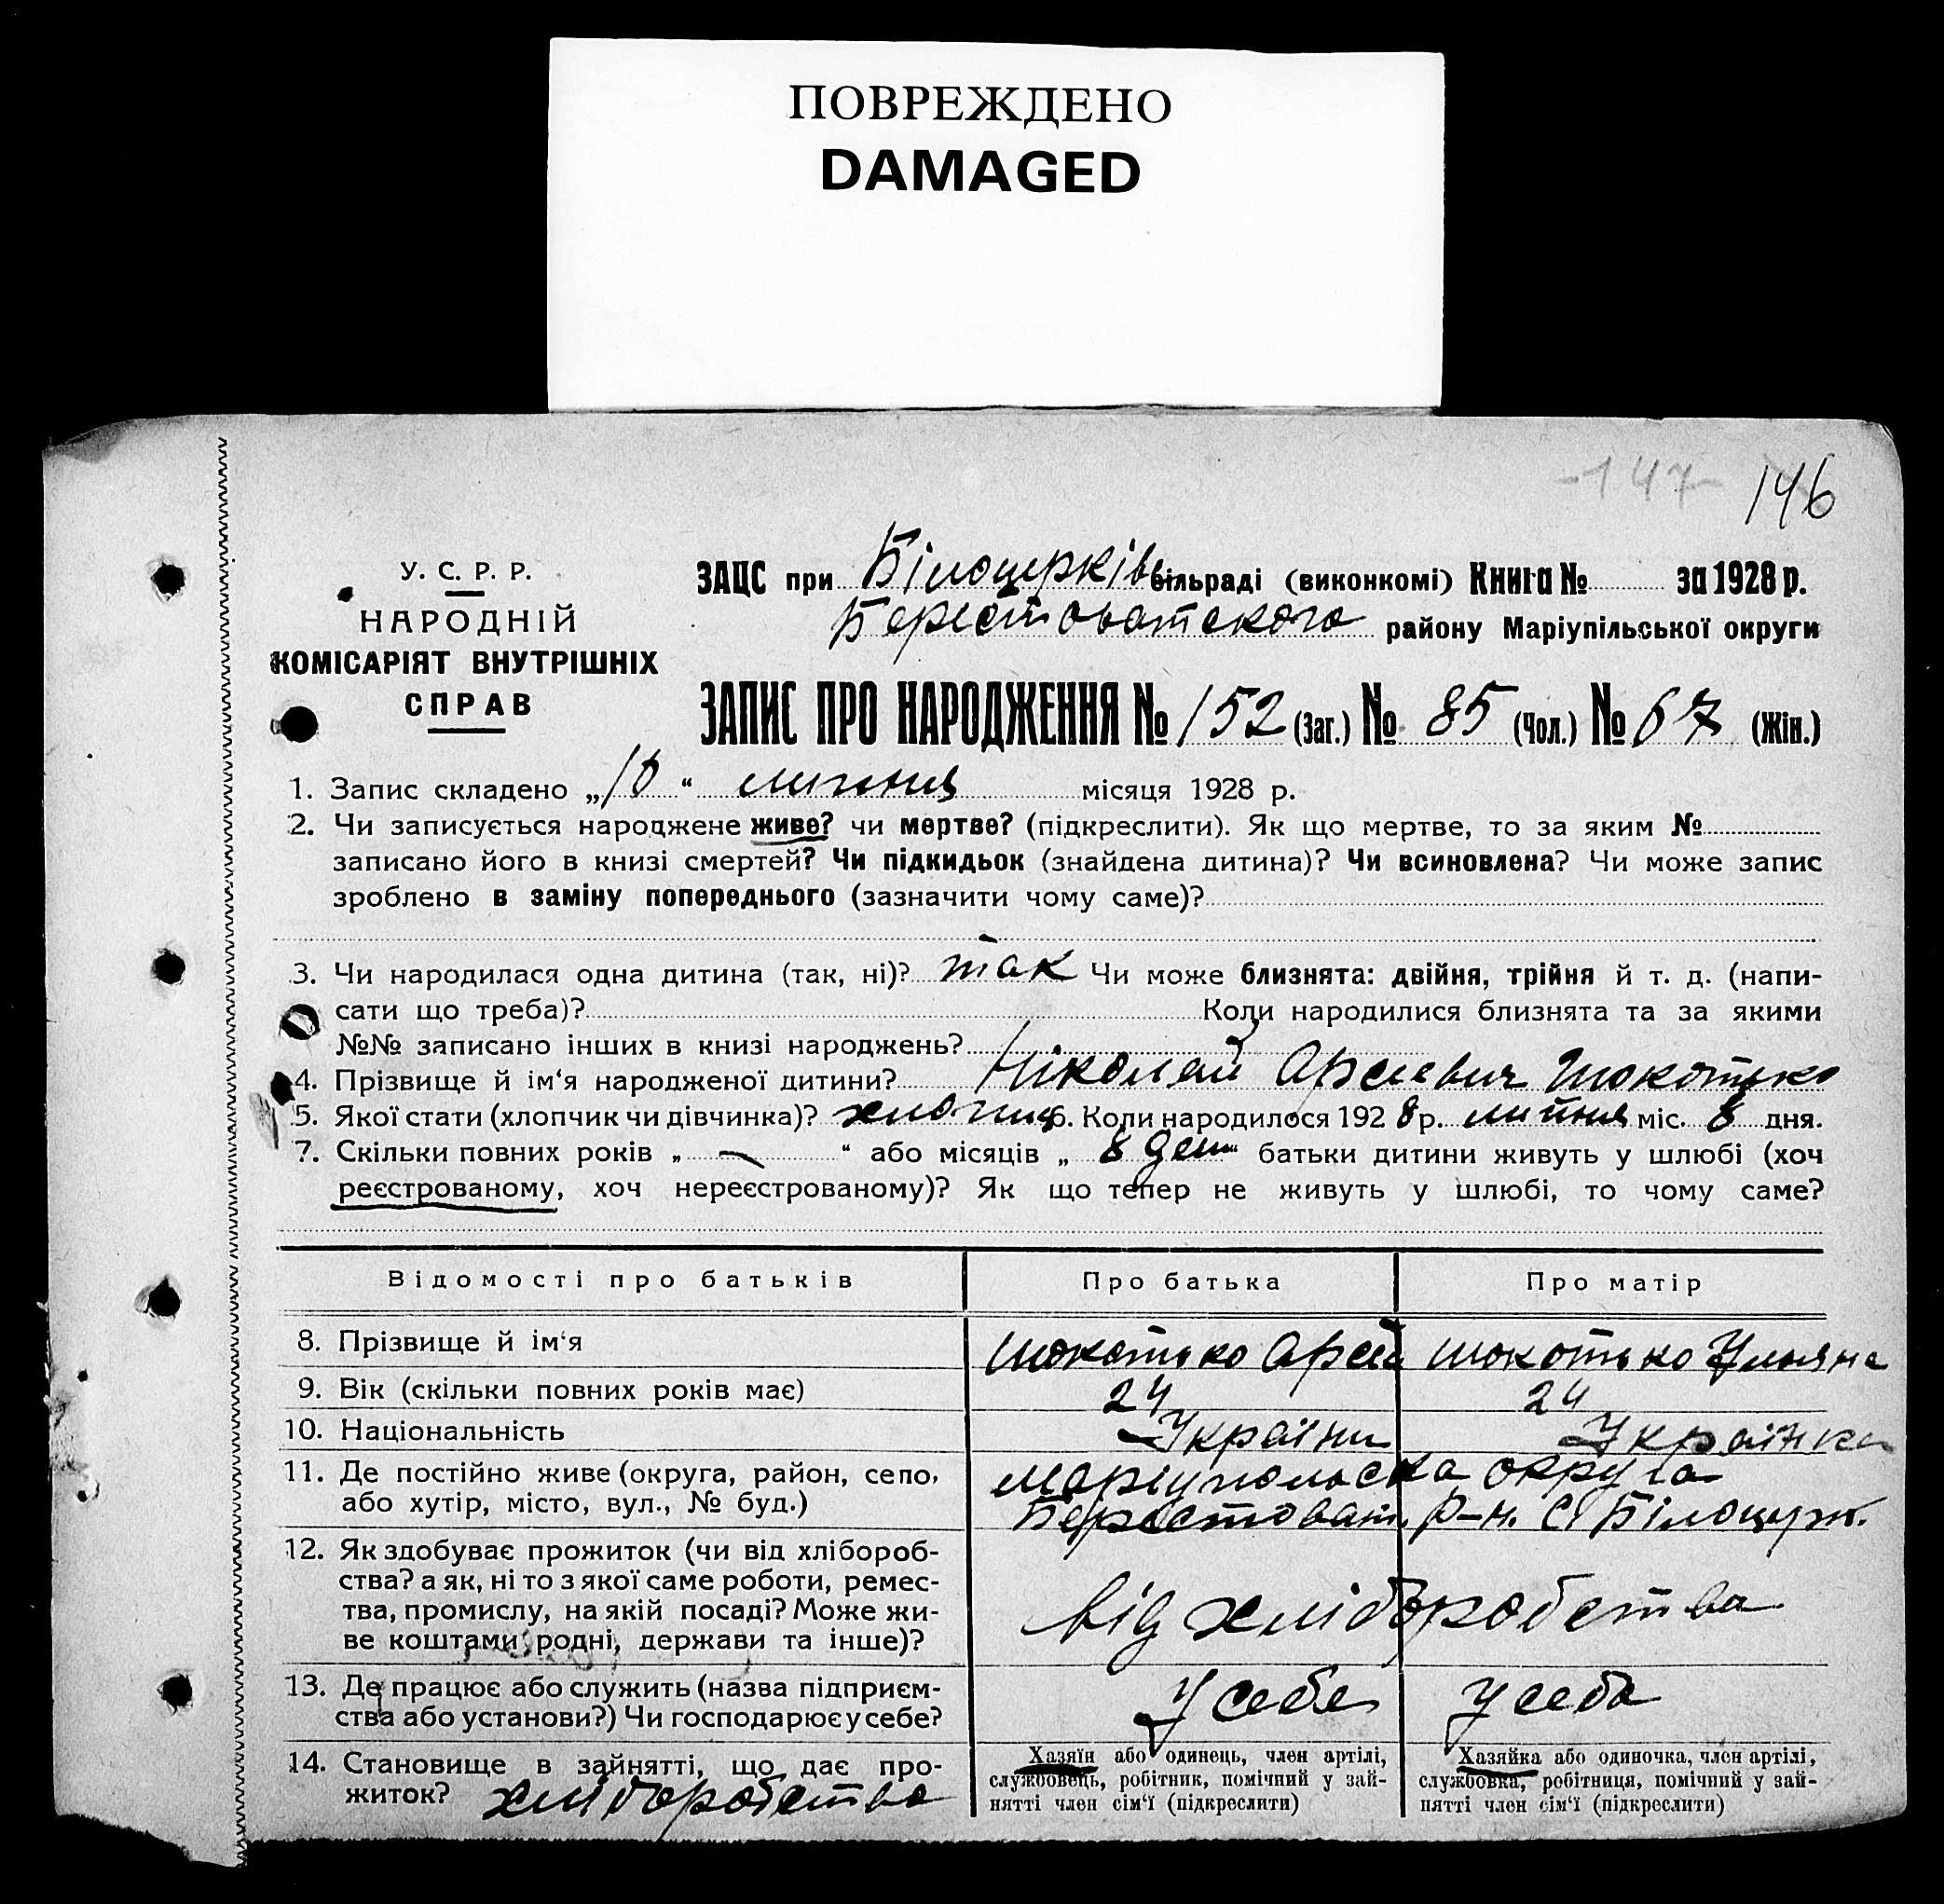 ПОВРЕЖДЕНО
DAMAGED
-147- 146
У. С. Р. Р.
НАРОДНІЙ
КОМІСАРІЯТ ВНУТРІШНІХ
СПРАВ
ЗАЦС при Білоцерків. сільраді (виконкомі) Книга № за 1928 р.
Берестоватского району Маріупільської округи
ЗАПИС ПРО НАРОДЖЕННЯ № 152 (Заг.) № 85 (Чол.) № 67 (Жін.)
1. Запис складено „10“ липня місяця 1928 р.
2. Чи записується народжене живе? чи мертве? (підкреслити). Як що мертве, то за яким №
записано його в книзі смертей? Чи підкидьок (знайдена дитина)? Чи всиновлена? Чи може запис
зроблено в заміну попереднього (зазначити чому саме)?
3. Чи народилася одна дитина (так, ні)? так Чи може близнята: двійня, трійня й т. д. (напи-
сати що треба)? Коли народилися близнята та за якими
№№ записано інших в книзі народжень?
4. Прізвище й ім‘я народженої дитини? Ніколай Арсеевич Шокотько
5. Якої стати (хлопчик чи дівчинка)? хлопець 6. Коли народилося 1928 р. липня міс. 8 дня.
7. Скільки повних років „ — “ або місяців „ 8 “ батьки дитини живуть у шлюбі (хоч
реєстрованому, хоч нереєстрованому)? Як що тепер не живуть у шлюбі, то чому саме?
Відомості про батьків Про батька Про матір
8. Прізвище й ім‘я Шокотько Арсей Шокотько Ульяна
9. Вік (скільки повних років має) 24 24
10. Національність Україн. Українка
11. Де постійно живе (округа, район, село, Маріупольска округа
або хутір, місто, вул., № буд.) Берестоват. р-н. с. Білоцерк.
12. Як здобуває прожиток (чи від хлібороб-
ства? а як, ні то з якої саме роботи, ремес-
тва, промислу, на якій посаді? Може жи- від хліборобства
ве коштами родні, держави та інше)?
13. Де працює або служить (назва підприєм- У себе У себе
ства або установи?) Чи господарює у себе?
14. Становище в зайнятті, що дає про- Хазяїн або одинець, член артілі, Хазяйка або одиночка, член артілі,
житок? хліборобства службовець, робітник, помічний у зай- службовка, робітниця, помічний у зай-
нятті член сім‘ї (підкреслити) нятті член сім‘ї (підкреслити)